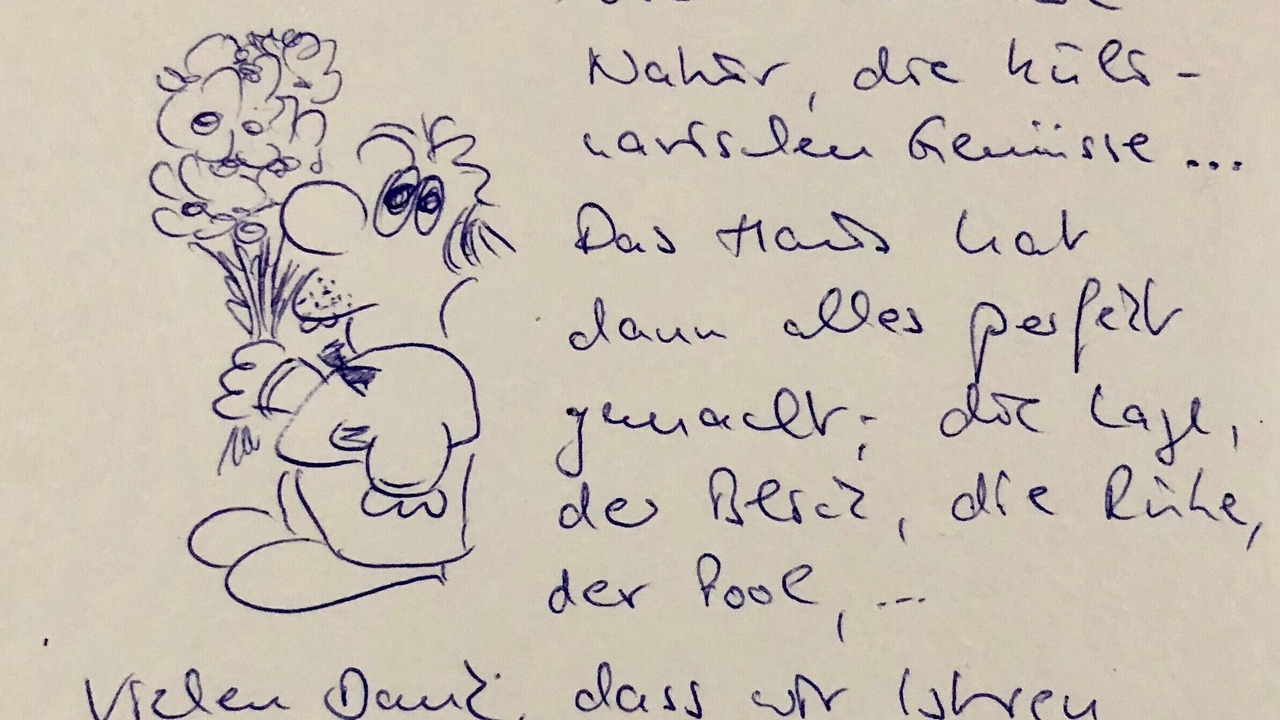 Natur, die kuli-
narischen Genüsse ...
Das Haus hat
dann alles perfekt
gemacht; die Lage,
der Blick, die Ruhe,
der Pool, ...
Vielen Dank, dass wir Ihren